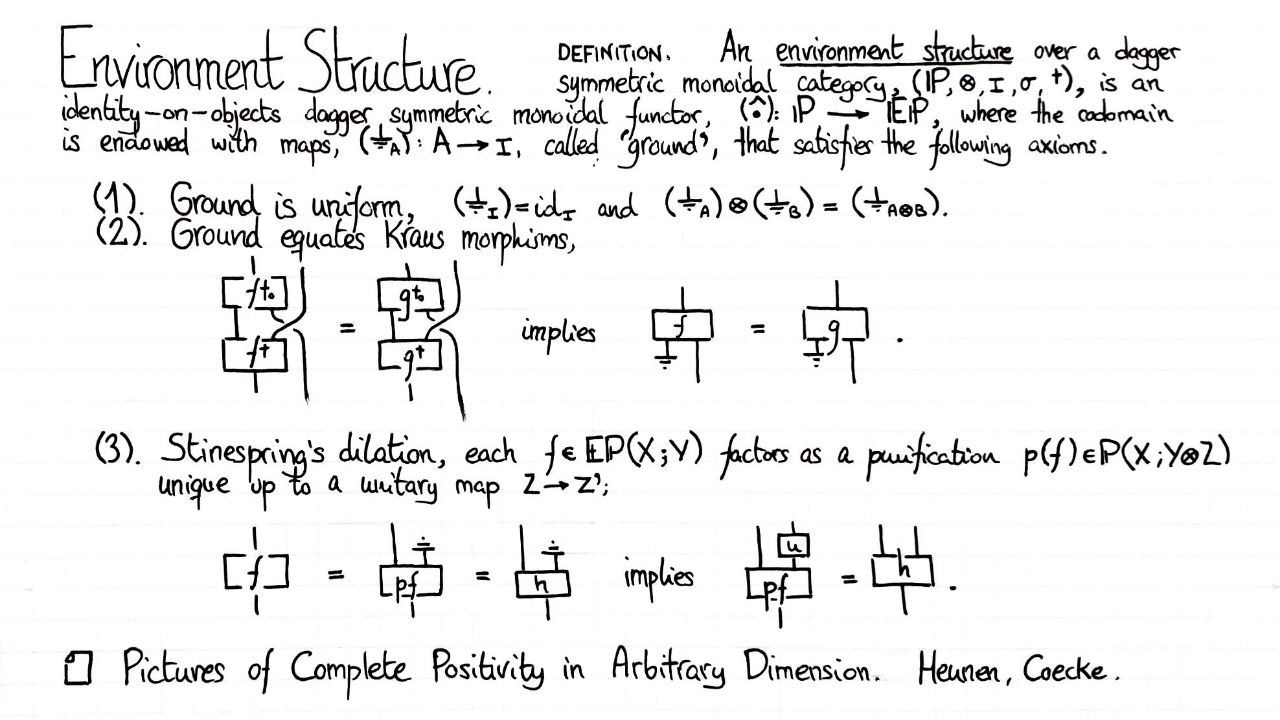 Environment Structure.
DEFINITION. An environment structure over a dagger
symmetric monoidal category, (ℙ, ⊗, I, σ, †), is an
identity-on-objects dagger symmetric monoidal functor, (^•): ℙ → 𝔼ℙ, where the codomain
is endowed with maps, (⏚_A): A → I, called "ground", that satisfies the following axioms.
(1). Ground is uniform, (⏚_I) = id_I and (⏚_A) ⊗ (⏚_B) = (⏚_A⊗B).
(2). Ground equates Kraus morphisms,
f†∘ g†∘
= implies f = g .
f† g†
(3). Stinespring's dilation, each f ∈ 𝔼ℙ(X;Y) factors as a purification p(f) ∈ ℙ(X;Y⊗Z)
unique up to a unitary map Z → Z';
u
f = pf = h implies pf = h .
Pictures of Complete Positivity in Arbitrary Dimension. Heunen, Coecke.